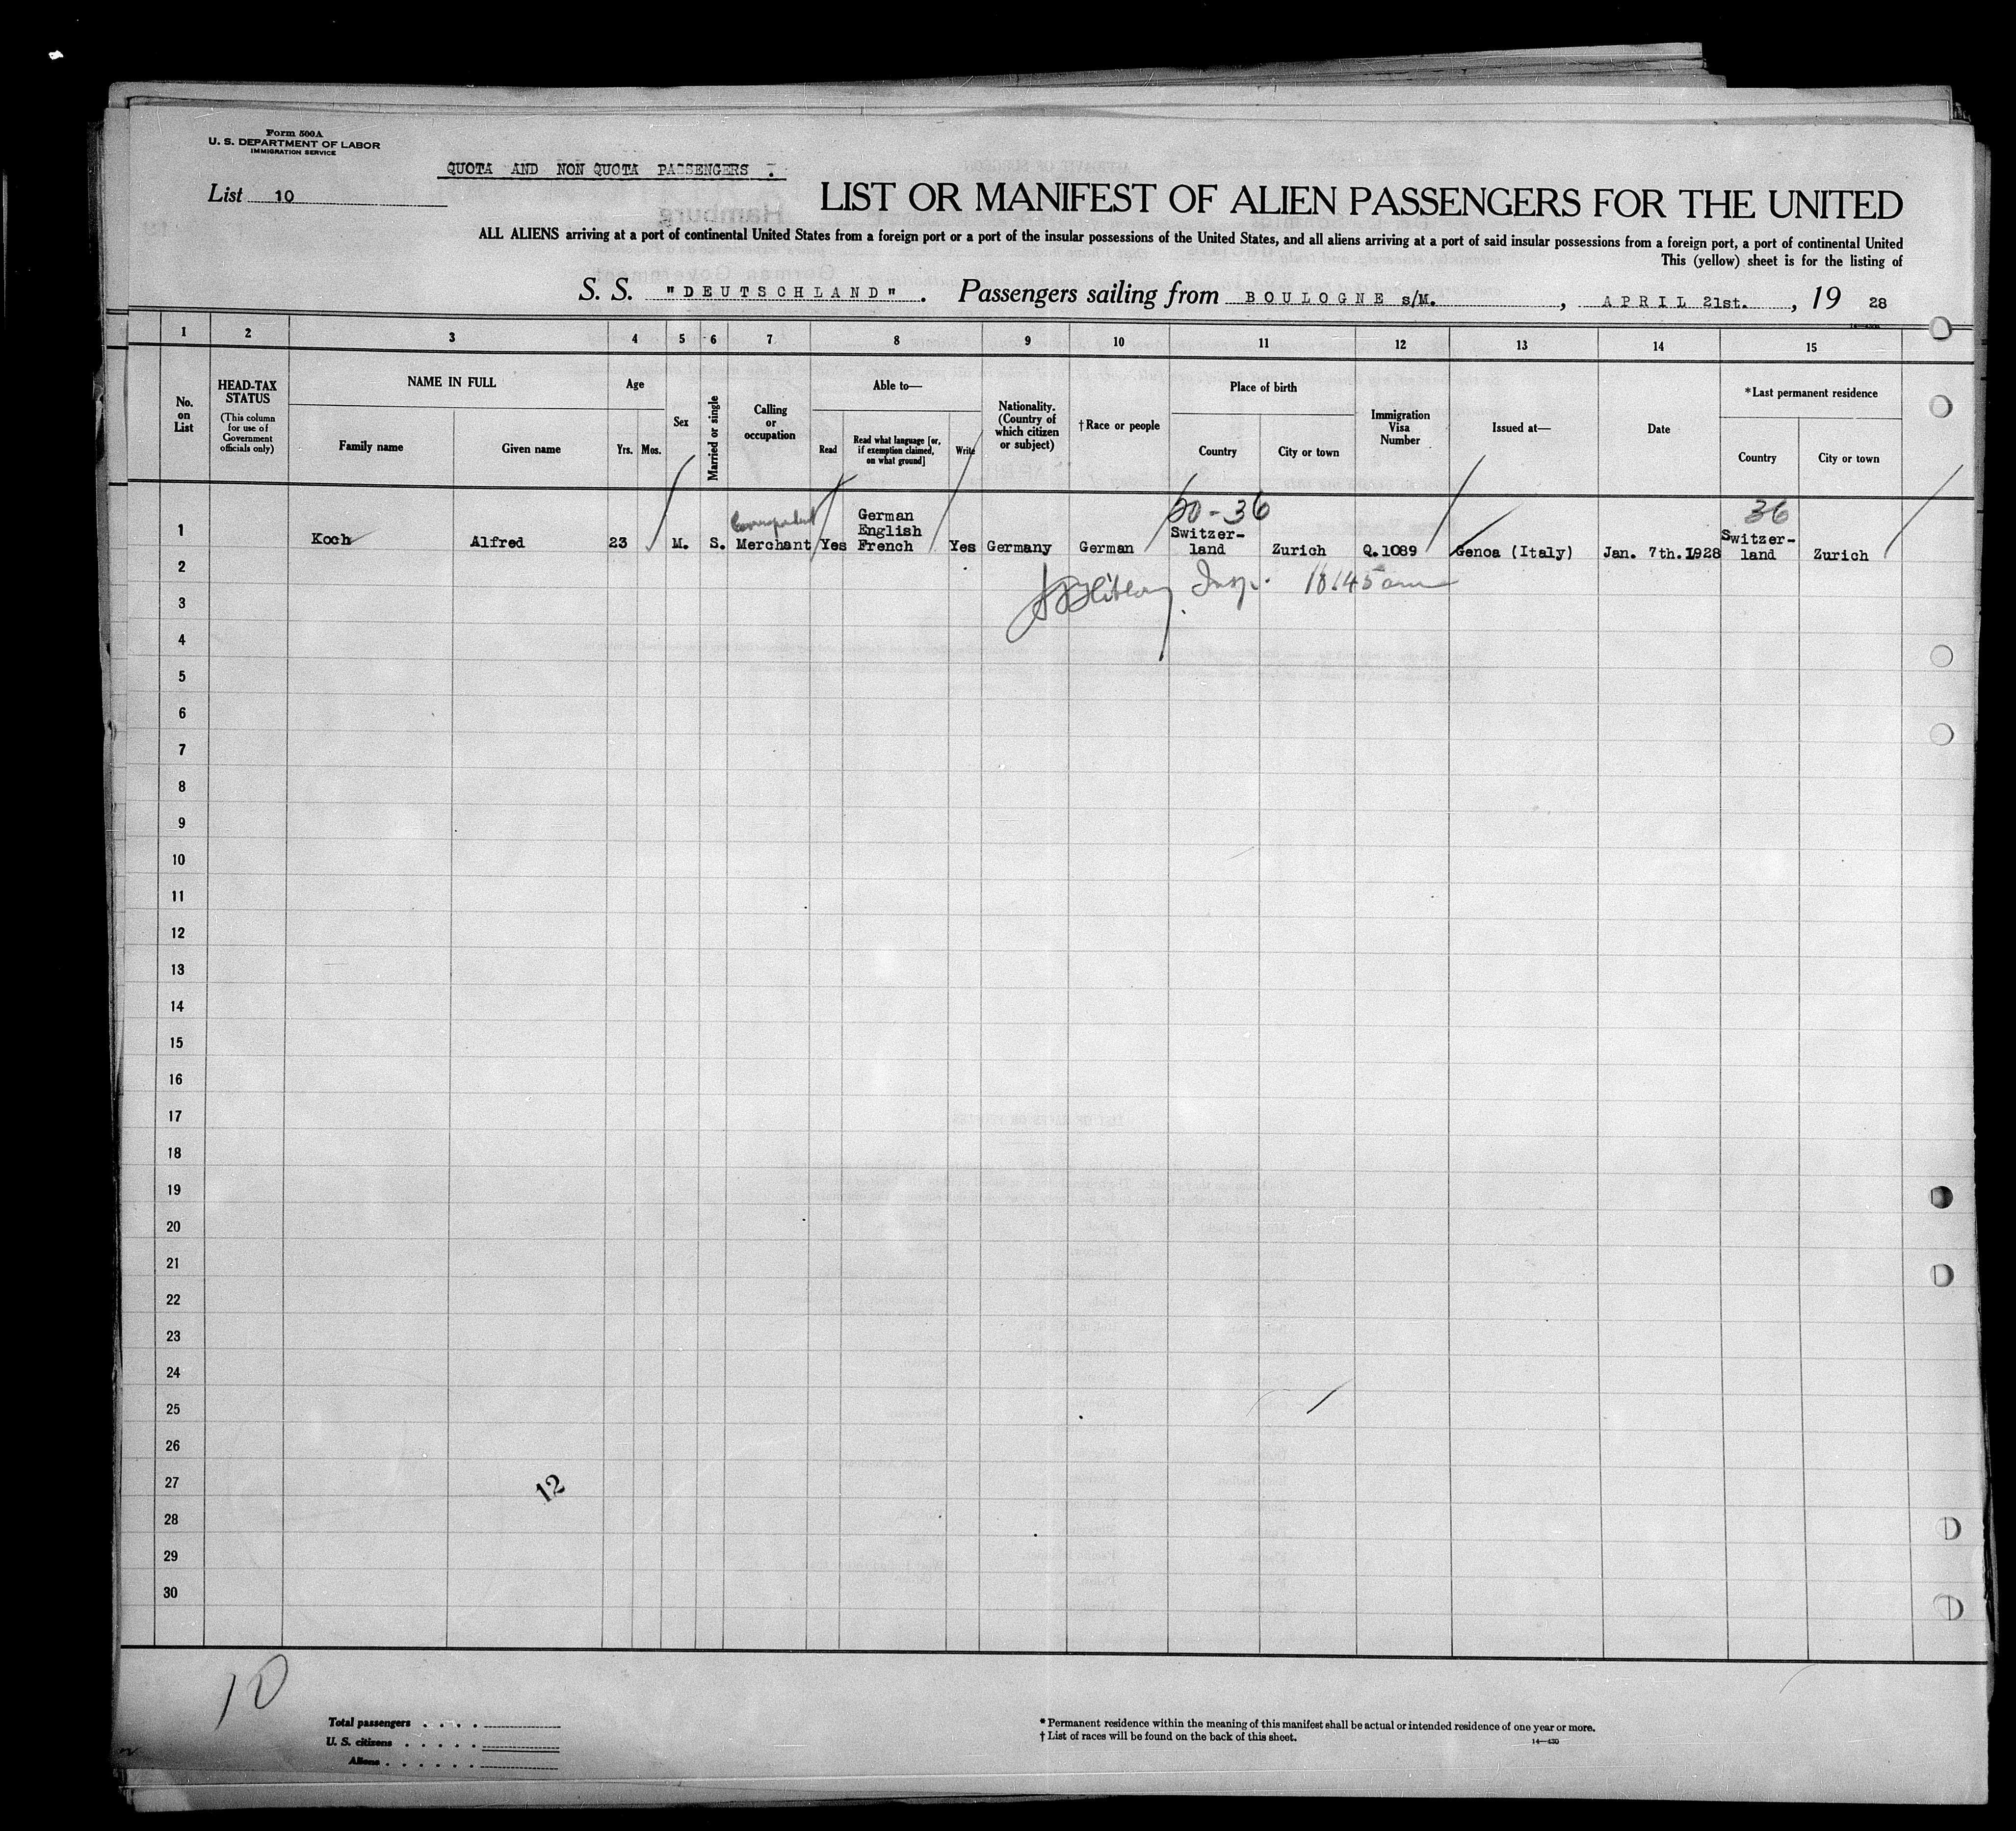 Form 500A
U. S. DEPARTMENT OF LABOR
IMMIGRATION SERVICE
QUOTA AND NON QUOTA PASSENGERS .
List 10
LIST OR MANIFEST OF ALIEN PASSENGERS FOR THE UNITED
ALL ALIENS arriving at a port of continental United States from a foreign port or a port of the insular possessions of the United States, and all aliens arriving at a port of said insular possessions from a foreign port, a port of continental United
This (yellow) sheet is for the listing of
S. S. "DEUTSCHLAND" . Passengers sailing from BOULOGNE s/M. , APRIL 21st. , 19 28
1 2 3 4 5 6 7 8 9 10 11 12 13 14 15
No. on List
HEAD-TAX STATUS
(This column for use of Government officials only)
NAME IN FULL
Family name
Given name
Age
Yrs.
Mos.
Sex
Married or single
Calling or occupation
Able to—
Read
Read what language [or, if exemption claimed, on what ground]
Write
Nationality. (Country of which citizen or subject)
†Race or people
Place of birth
Country
City or town
Immigration Visa Number
Issued at—
Date
*Last permanent residence
Country
City or town
1 Koch Alfred 23 M. S. Correspondent Merchant Yes German English French Yes Germany German 20-36 Switzer-land Zurich Q.1089 Genoa (Italy) Jan. 7th.1928 36 Switzer-land Zurich
2 Insp. 10:45 am
3
4
5
6
7
8
9
10
11
12
13
14
15
16
17
18
19
20
21
22
23
24
25
26
27
12
28
29
30
10
Total passengers . . . .
U. S. citizens . . . . .
Aliens . . . . . .
* Permanent residence within the meaning of this manifest shall be actual or intended residence of one year or more.
† List of races will be found on the back of this sheet.
14—430